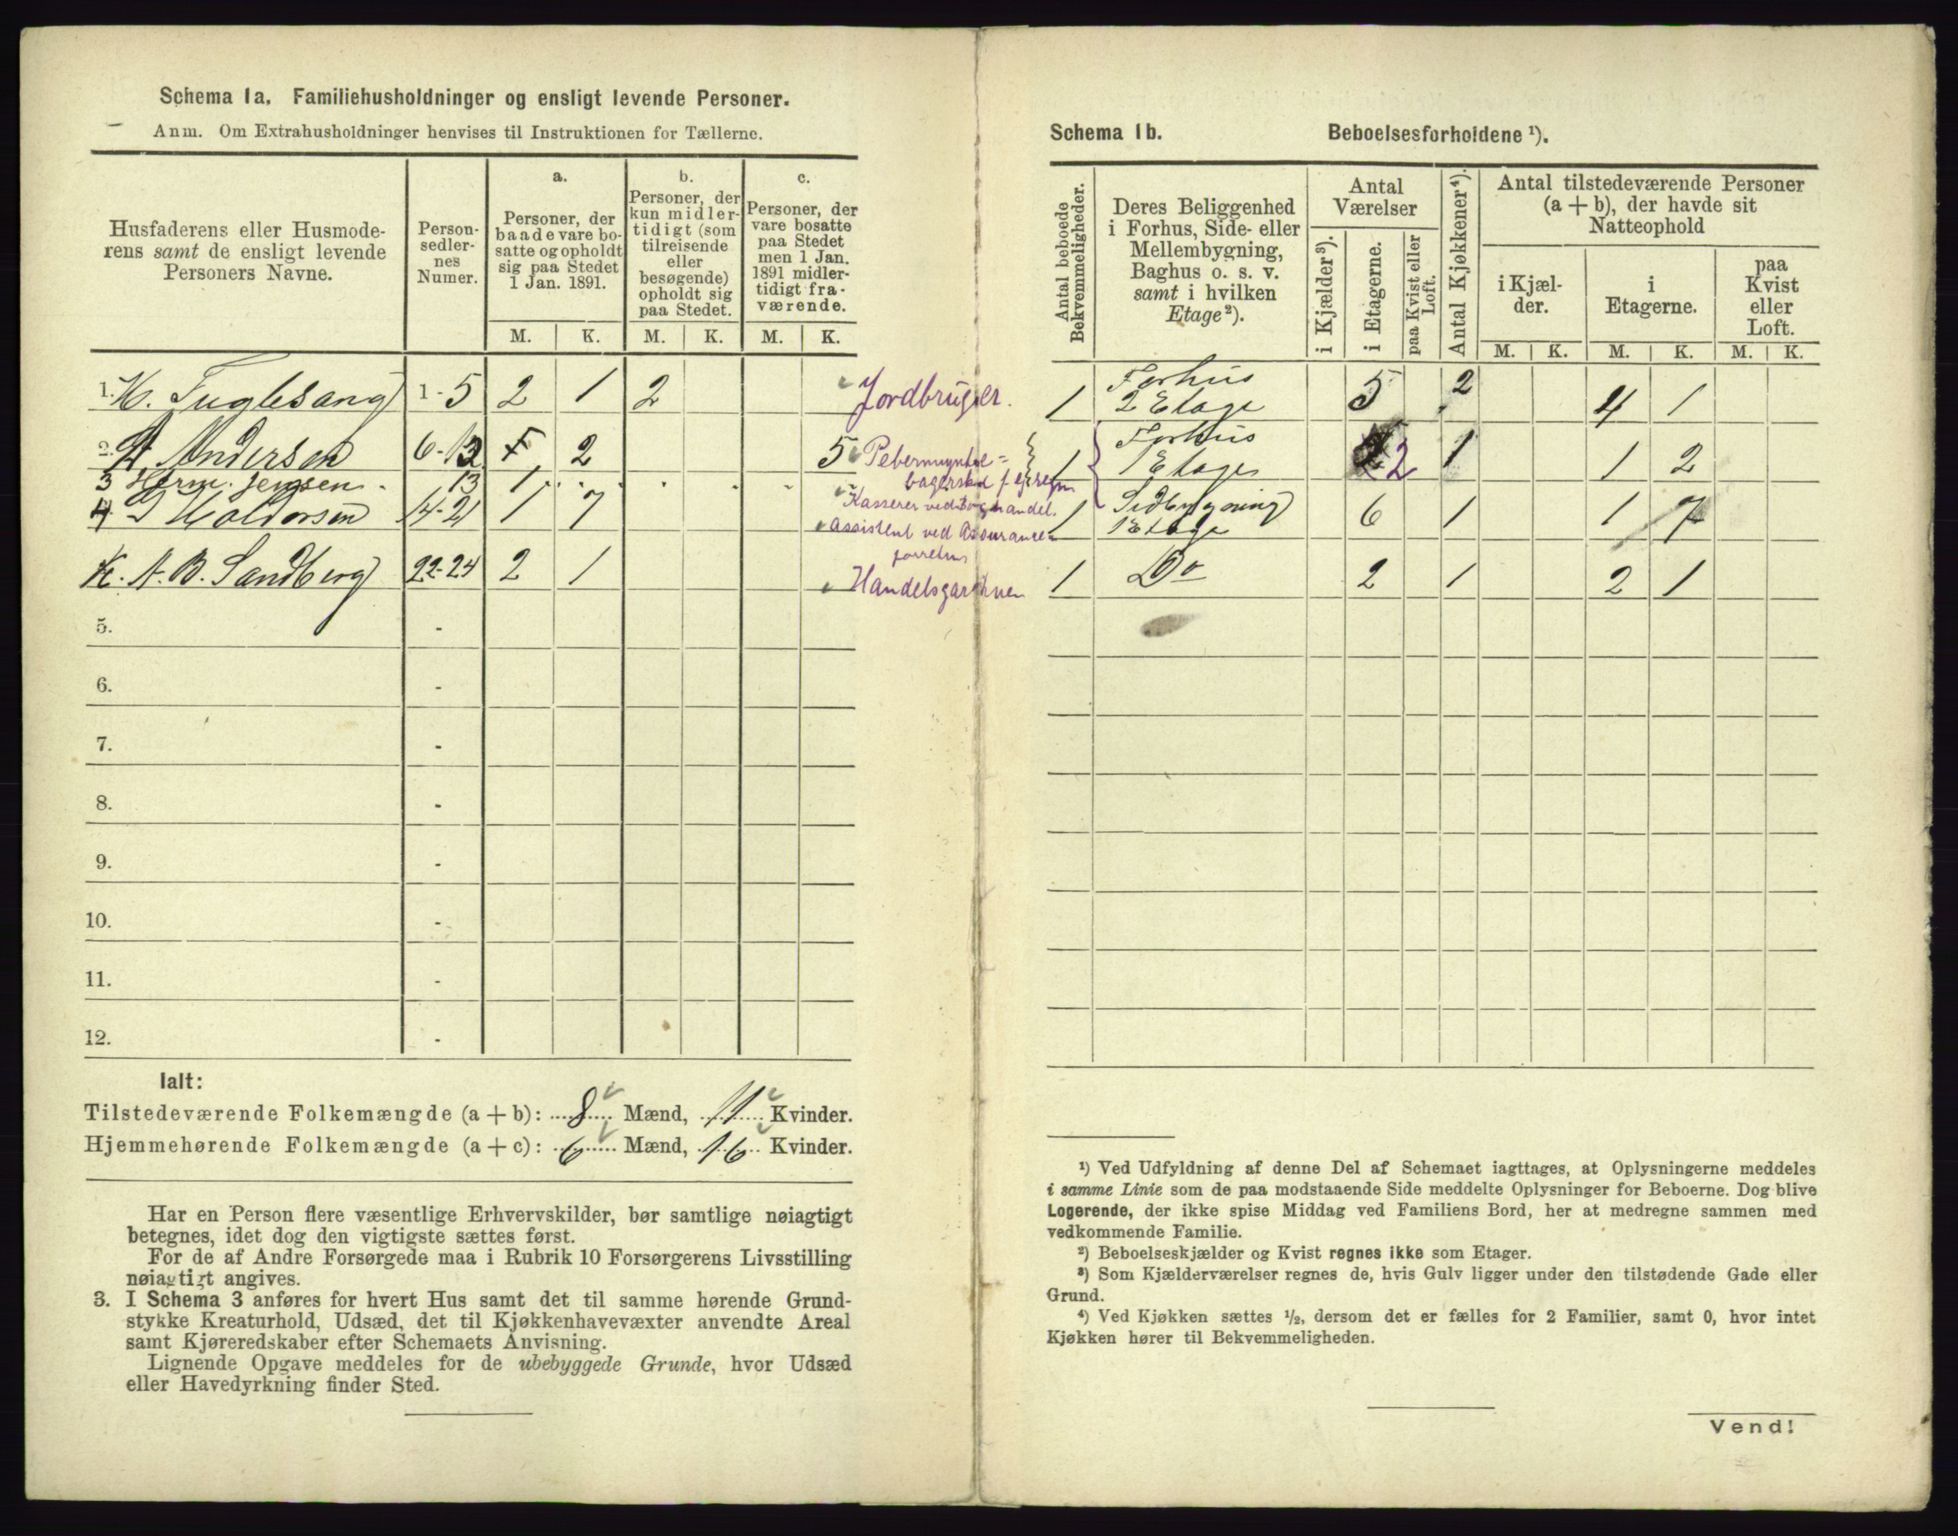 Schema 1a. Familiehusholdninger og ensligt levende Personer.
Anm. Om Extrahusholdninger henvises til Instruktionen for Tællerne.
Husfaderens eller Husmoderens samt de ensligt levende Personers Navne.
Personsedlernes Numer.
a.
Personer, der baade vare bosatte og opholdt sig paa Stedet 1 Jan. 1891.
b.
Personer, der kun midlertidigt (som tilreisende eller besøgende) opholdt sig paa Stedet.
c.
Personer, der vare bosatte paa Stedet men 1 Jan. 1891 midlertidigt fraværende.
M. K. M. K. M. K.
1. H. Fuglesang 1-5 2 1 2 Jordbruger.
2. A. Andersen 6-12 F 2 5 Pebermynte=
3 Herm. Jensen. 13 1
4. Haldorsen 14-21 1 7 Kasserer ved
Assistent ved Assurance=
K. A. B. Sandberg 22-24 2 1 Handelsgartner
5. -
6. -
7. -
8. -
9. -
10. -
11. -
12. -
Ialt:
Tilstedeværende Folkemængde (a + b): 8 Mænd, 11 Kvinder.
Hjemmehørende Folkemængde (a + c): 6 Mænd, 16 Kvinder.
Har en Person flere væsentlige Erhvervskilder, bør samtlige nøiagtigt
betegnes, idet dog den vigtigste sættes først.
For de af Andre Forsørgede maa i Rubrik 10 Forsørgerens Livsstilling
nøiagtigt angives.
3. I Schema 3 anføres for hvert Hus samt det til samme hørende Grund-
stykke Kreaturhold, Udsæd, det til Kjøkkenhavevæxter anvendte Areal
samt Kjøreredskaber efter Schemaets Anvisning.
Lignende Opgave meddeles for de ubebyggede Grunde, hvor Udsæd
eller Havedyrkning finder Sted.
Schema 1b. Beboelsesforholdene ¹).
Antal beboede Bekvemmeligheder.
Deres Beliggenhed i Forhus, Side- eller Mellembygning, Baghus o. s. v. samt i hvilken Etage²).
Antal Værelser
i Kjælder³).
i Etagerne.
paa Kvist eller Loft.
Antal Kjøkkener⁴).
Antal tilstedeværende Personer (a + b), der havde sit Natteophold
i Kjælder.
i Etagerne.
paa Kvist eller Loft.
M. K. M. K. M. K.
1 Forhus 2 Etage 5 2 4 1
1 Forhus 1 Etage 2 1 1 2
1 Sidbygning 1 Etage 6 1 1 7
1 Do 2 1 2 1
¹) Ved Udfyldning af denne Del af Schemaet iagttages, at Oplysningerne meddeles
i samme Linie som de paa modstaaende Side meddelte Oplysninger for Beboerne. Dog blive
Logerende, der ikke spise Middag ved Familiens Bord, her at medregne sammen med
vedkommende Familie.
²) Beboelseskjælder og Kvist regnes ikke som Etager.
³) Som Kjælderværelser regnes de, hvis Gulv ligger under den tilstødende Gade eller
Grund.
⁴) Ved Kjøkken sættes ½, dersom det er fælles for 2 Familier, samt 0, hvor intet
Kjøkken hører til Bekvemmeligheden.
Vend!